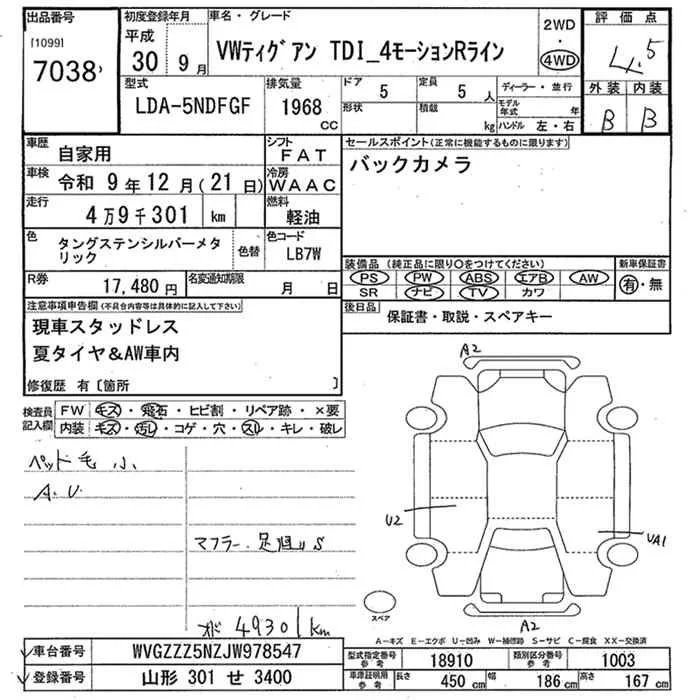 出品番号
[1099]
7038
初度登録年月
平成
30 9月
車名・グレード
VWティグアン TDI_4モーションRライン
2WD
・
4WD
評価点
4.5
外装 内装
B B
型式
LDA-5NDFGF
排気量
1968
CC
ドア 5
形状
定員 5 人
積載 kg
ディーラー・並行
モデル年式 年
ハンドル 左・右
車歴
自家用
シフト
FAT
車検 令和 9年12月(21日)
冷房
WAAC
走行
4万9千301 km
燃料
軽油
色
タングステンシルバーメタリック
色替
色コード
LB7W
R券
17,480円
名変通知期限
月 日
セールスポイント(正常に機能するものに限ります)
バックカメラ
装備品 (純正品に限り○をつけてください)
PS PW ABS エアB AW
SR ナビ TV カワ
新車保証書
有・無
後日品
保証書・取説・スペアキー
注意事項申告欄(不具合内容等は具体的に記入して下さい)
現車スタッドレス
夏タイヤ&AW車内
修復歴 有〔箇所 〕
検査員記入欄
FW キズ・飛石・ヒビ割・リペア跡・×要
内装 キズ・汚レ・コゲ・穴・スレ・キレ・破レ
ペット毛 小
A.U.
マフラー.足廻りS
オド 49301km
A2
U2
UA1
A2
スペア
A-キズ E-エクボ U-凹み W-補修跡 S-サビ C-腐食 XX-交換済
車台番号
WVGZZZ5NZJW978547
登録番号
山形 301 せ 3400
型式指定番号
参考
18910
類別区分番号
参考
1003
車庫証明用
参考
長さ 450cm
幅 186cm
高さ 167cm